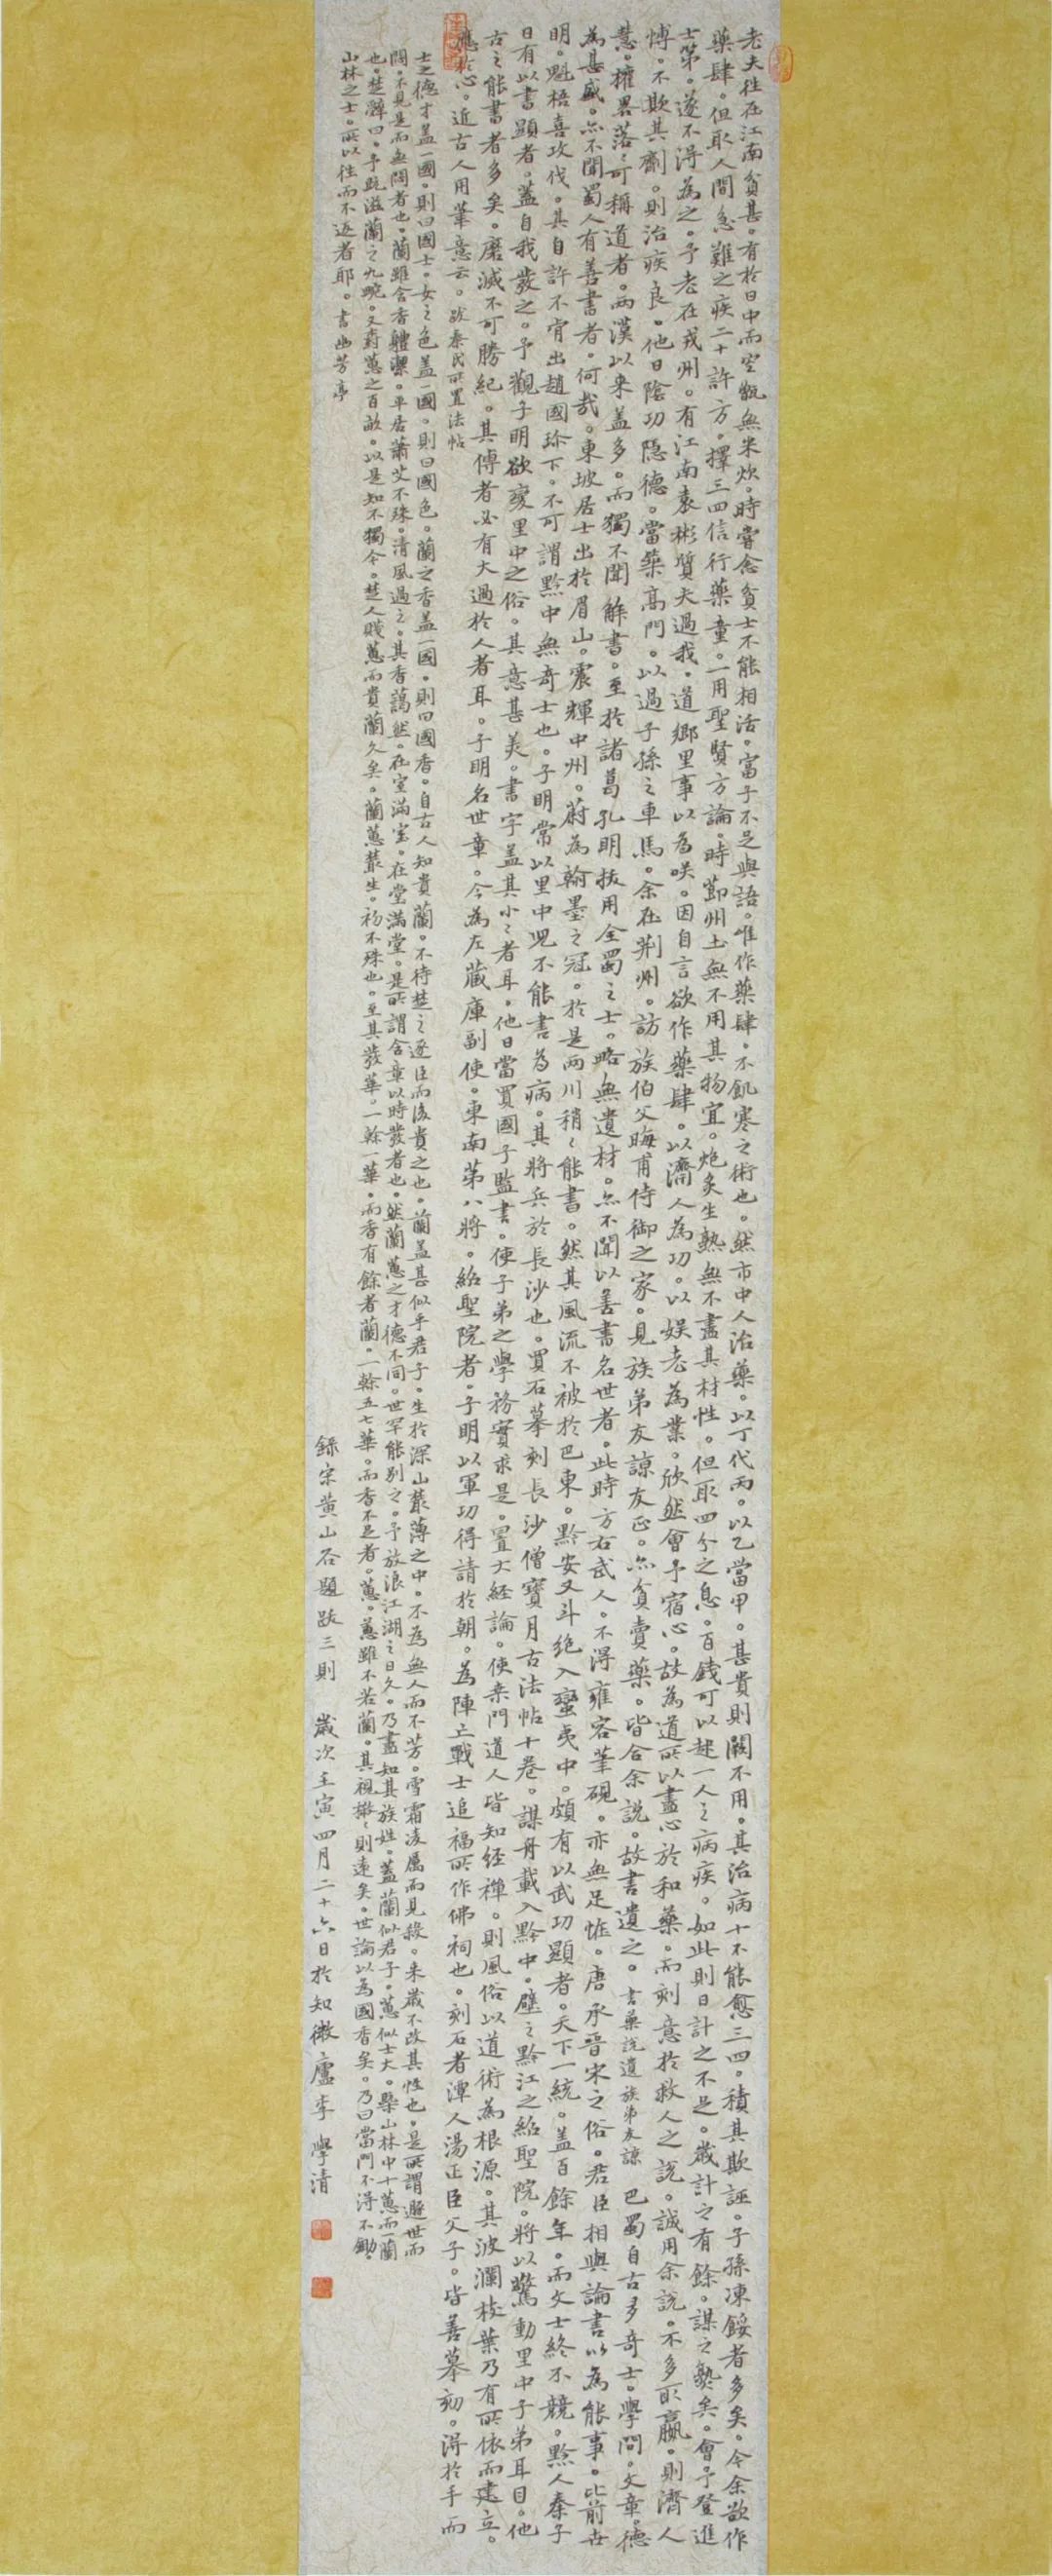 老夫往在江南貧甚。有於日中而空甑無米炊。時嘗念貧士不能相活。富子不足與語。唯作藥肆。不飢寒之術也。然市中人治藥。以丁代丙。以乙當甲。甚貴則闕不用。其治病十不能愈三四。積其欺誣。子孫凍餒者多矣。今余欲作
藥肆。但取人間急難之疾二十許方。擇三四信行藥童。一用聖賢方論。時節州土無不用其物宜。炮炙生熟無不盡其材性。但取四分之息。百錢可以起一人之病疾。如此則日計之不足。歲計之有餘。謀之熟矣。會予登進
士第。遂不得為之。予老在戎州。有江南袁彬質夫過我。道鄉里事以為咲。因自言欲作藥肆。以濟人為功。以娛老為業。欣然會予宿心。故為道所以盡心於和藥。而刻意於救人之說。誠用余說。不多取贏。則濟人
博。不欺其劑。則治疾良。他日陰功隱德。當築高門。以過子孫之車馬。余在荊州。訪族伯父晦甫侍御之家。見族弟友諒友正。亦貧賣藥。皆合余說。故書遺之。書藥說遺族弟友諒 巴蜀自古多奇士。學問。文章。德
慧。權畧落々可稱道者。兩漢以来蓋多。而獨不聞解書。至於諸葛孔明拔用全蜀之士。略無遺材。亦不聞以善書名世者。此時方右武人。不得雍容筆硯。亦無足恠。唐承晉宋之俗。君臣相與論書以為能事。比前世
為甚盛。亦不聞蜀人有善書者。何哉。東坡居士出於眉山。震輝中州。蔚為翰墨之冠。於是兩川稍々能書。然其風流不被於巴東。黔安又斗絶入蠻夷中。頗有以武功顯者。天下一統。蓋百餘年。而文士終不競。黔人秦子
明。魁梧喜攻伐。其自許不肯出趙國珍下。不可謂黔中無奇士也。子明常以里中兒不能書為病。其將兵於長沙也。買石摹刻長沙僧寶月古法帖十卷。謀舟載入黔中。壁之黔江之紹聖院。將以驚動里中子弟耳目。他
日有以書顯者。蓋自我發之。予觀子明欲變里中之俗。其意甚美。書字蓋其小々者耳。他日當買國子監書。使子弟之學務實求是。置大經論。使桑門道人皆知經禪。則風俗以道術為根源。其波瀾枝葉乃有所依而建立。
古之能書者多矣。磨滅不可勝紀。其傳者必有大過於人者耳。子明名世章。今為左藏庫副使。東南第八將。紹聖院者。子明以軍功得請於朝。為陣亡戰士追福所作佛祠也。刻石者潭人湯正臣父子。皆善摹刻。得於手而
應於心。近古人用筆意云。跋秦氏所置法帖
士之德才蓋一國。則曰國士。女之色蓋一國。則曰國色。蘭之香蓋一國。則曰國香。自古人知貴蘭。不待楚之逐臣而後貴之也。蘭蓋甚似乎君子。生於深山叢薄之中。不為無人而不芳。雪霜凌厲而見殺。来歲不改其性也。是所謂遯世而
悶。不見是而無悶者也。蘭雖含香體潔。平居蕭艾不殊。清風過之。其香藹然。在室滿室。在堂滿堂。是所謂含章以時發者也。然蘭蕙之才德不同。世罕能別之。予放浪江湖之日久。乃盡知其族姓。蓋蘭似君子。蕙似士大。槩山林中十蕙而一蘭
也。楚辭曰。予既滋蘭之九畹。又樹蕙之百畝。以是知不獨今。楚人賤蕙而貴蘭久矣。蘭蕙叢生。初不殊也。至其發華。一榦一華。而香有餘者蘭。一榦五七華。而香不足者。蕙。蕙雖不若蘭。其視椒則遠矣。世論以為國香矣。乃曰當門不得不鋤
山林之士。所以往而不返者耶。書幽芳亭
錄宋黄山谷題跋三則 歲次壬寅四月二十六日於知微廬李學清